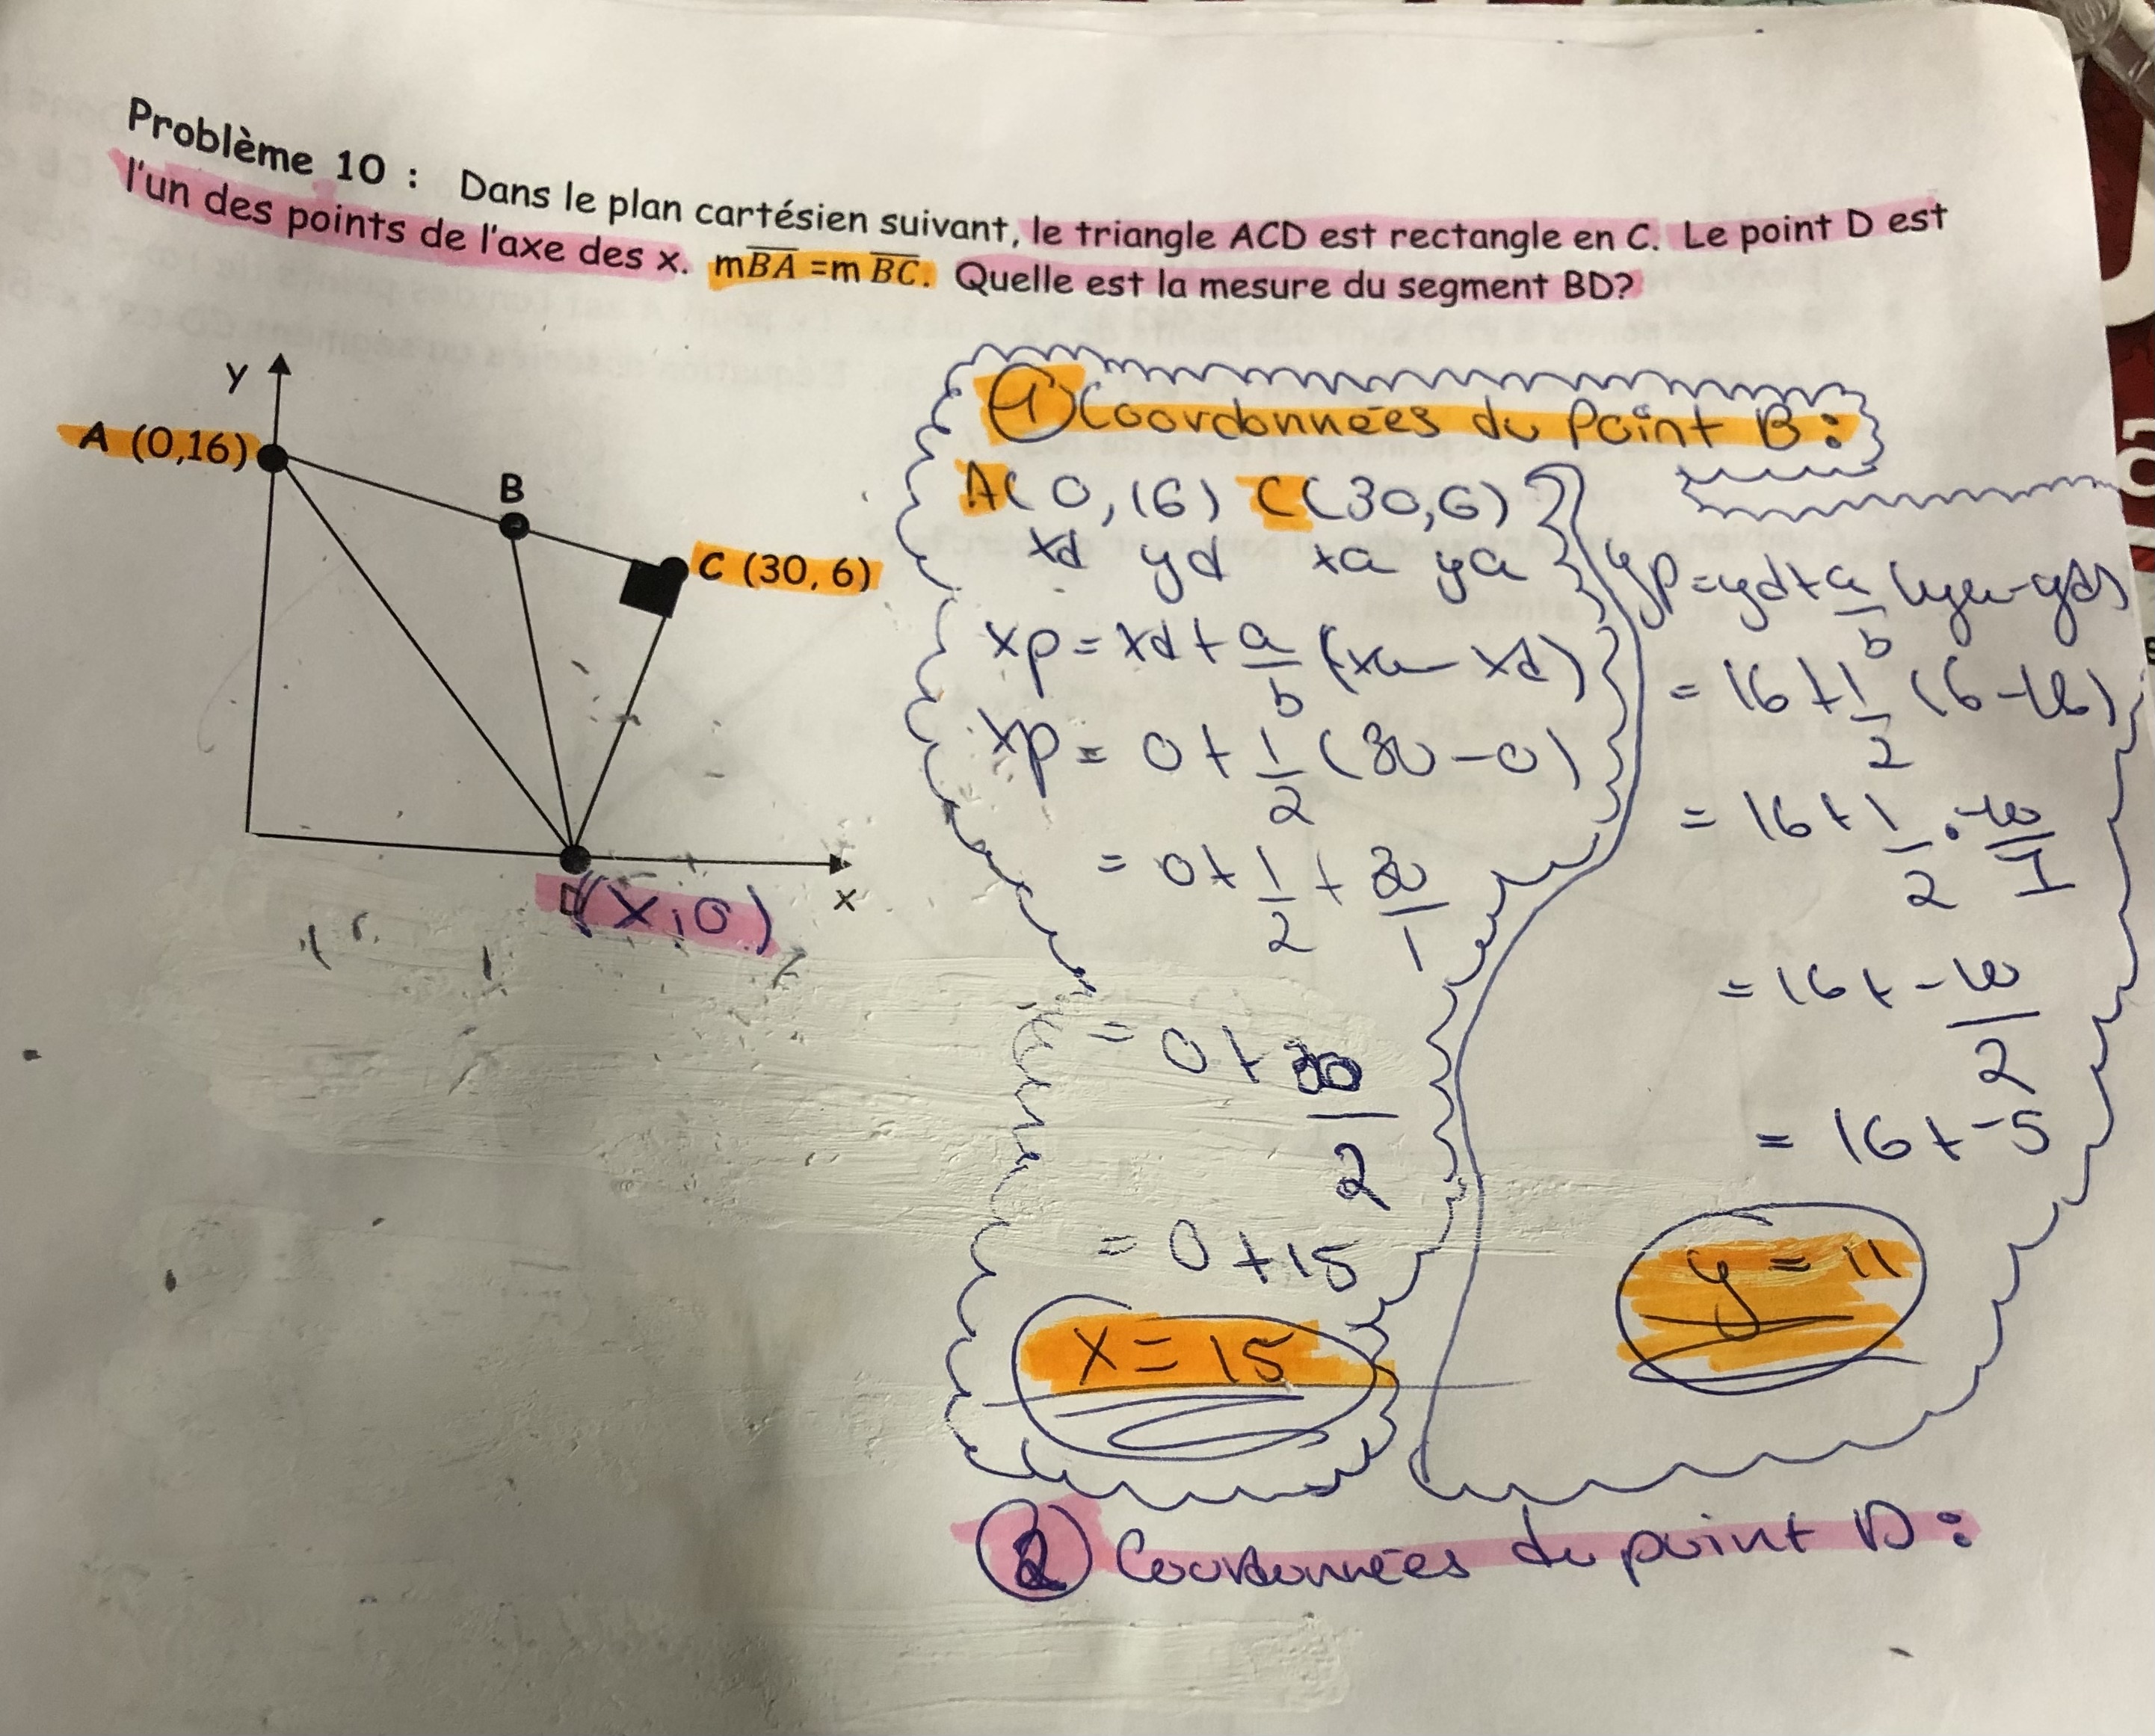 Problème 10 : Dans le plan cartésien suivant, le triangle ACD est rectangle en C. Le point D est
l'un des points de l'axe des x. mBA = m BC. Quelle est la mesure du segment BD?
y
A (0,16)
B
C (30, 6)
x
D(x,0)
① Coordonnées du Point B:
A(0,16) C(30,6)
xd yd xa ya
xp = xd + a/b (xa - xd)
xp = 0 + 1/2 (30 - 0)
= 0 + 1/2 + 30/1
= 0 + 30/2
= 0 + 15
x = 15
yp = yd + a/b (ya - yd)
= 16 + 1/2 (6 - 16)
= 16 + 1/2 · -10/1
= 16 + -10/2
= 16 + -5
y = 11
② Coordonnées du point D: